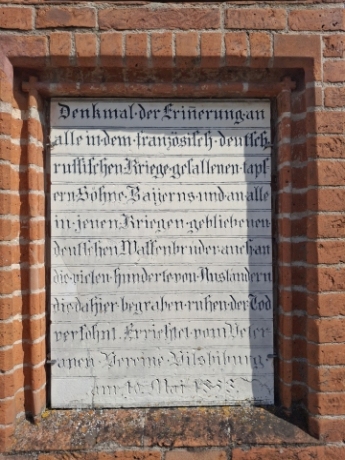 Denkmal·der·Erin̄erung·an
alle·in·dem·französisch·deutsch
russischen·Kriege·gefallenen·tapf
ern·Söhne·Bayerns·und·an·alle
in·jenen·Kriegen·gebliebenen
deutschen·Waffenbrüder·auch·an
die·vielen·hunderte·von·Ausländern
die·dahier·begraben·ruhen·der·Tod
versöhnt·Errichtet·vom·Veter
anen·Vereine·Vilsbiburg·
am· Mai·